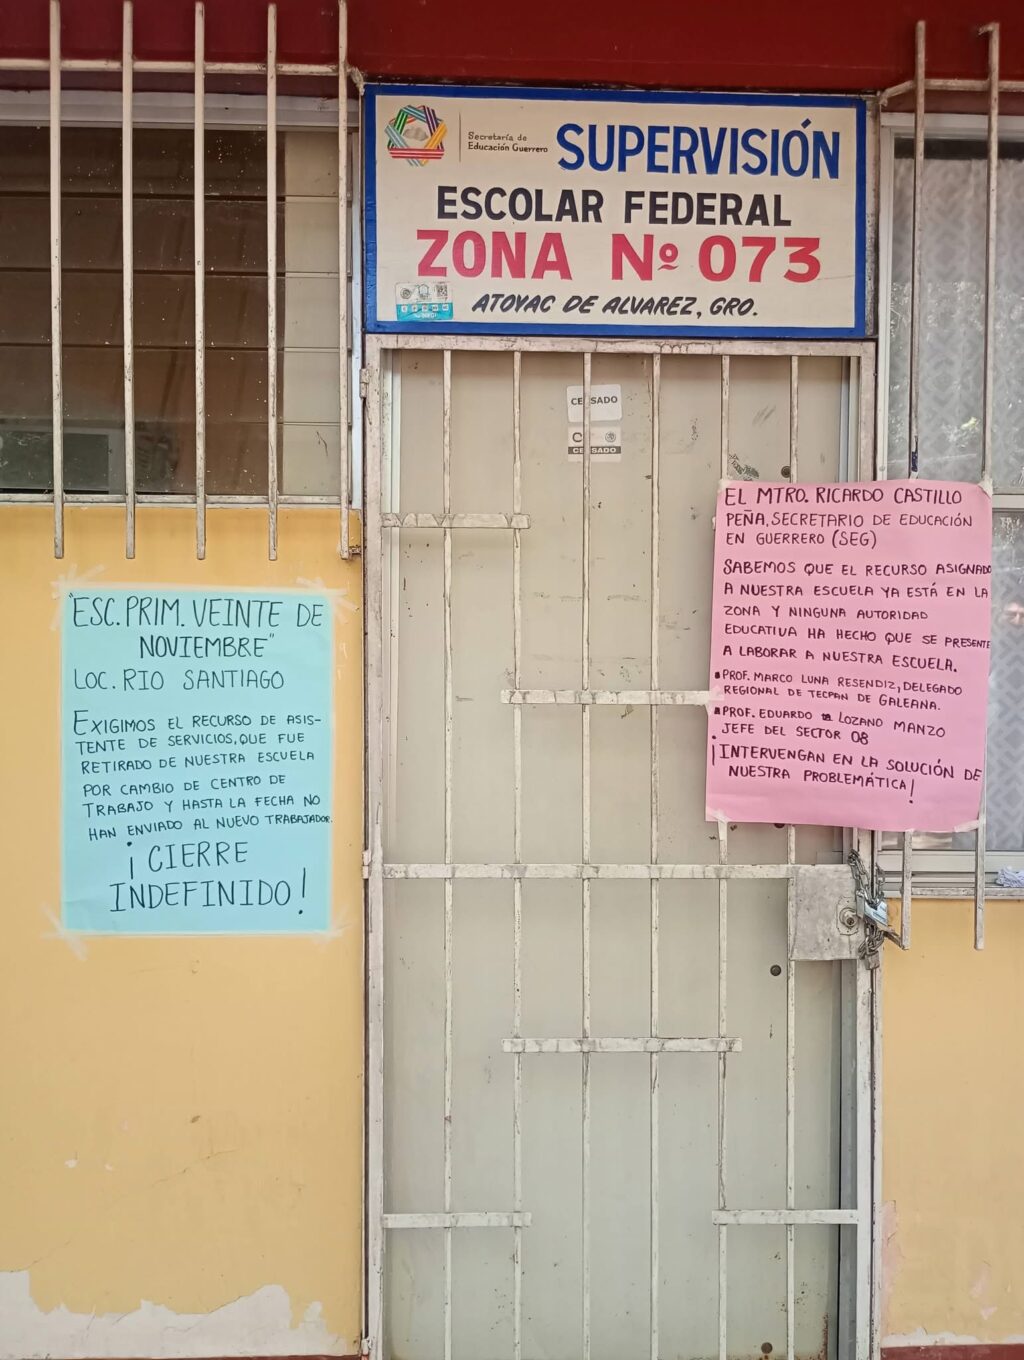 Secretaría de
Educación Guerrero
SUPERVISIÓN
ESCOLAR FEDERAL
ZONA Nº 073
ATOYAC DE ALVAREZ, GRO.
CENSADO
CENSADO
"ESC. PRIM. VEINTE DE
NOVIEMBRE"
LOC. RIO SANTIAGO
EXIGIMOS EL RECURSO DE ASIS-
TENTE DE SERVICIOS, QUE FUE
RETIRADO DE NUESTRA ESCUELA
POR CAMBIO DE CENTRO DE
TRABAJO Y HASTA LA FECHA NO
HAN ENVIADO AL NUEVO TRABAJADOR.
¡CIERRE
INDEFINIDO!
EL MTRO. RICARDO CASTILLO
PEÑA, SECRETARIO DE EDUCACIÓN
EN GUERRERO (SEG)
SABEMOS QUE EL RECURSO ASIGNADO
A NUESTRA ESCUELA YA ESTÁ EN LA
ZONA Y NINGUNA AUTORIDAD
EDUCATIVA HA HECHO QUE SE PRESENTE
A LABORAR A NUESTRA ESCUELA.
▪PROF. MARCO LUNA RESENDIZ, DELEGADO
REGIONAL DE TECPAN DE GALEANA.
▪PROF. EDUARDO LOZANO MANZO
JEFE DEL SECTOR 08
¡INTERVENGAN EN LA SOLUCIÓN DE
NUESTRA PROBLEMÁTICA!